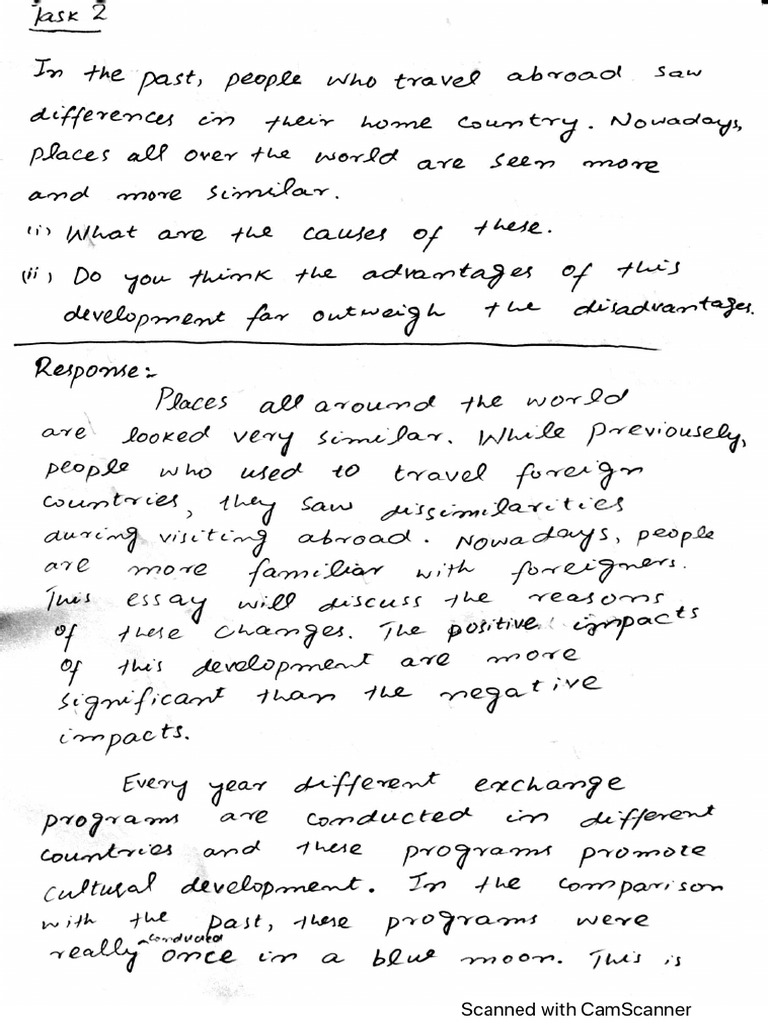 Task 2
In the past, people who travel abroad saw
differences in their home country. Nowadays,
places all over the world are seen more
and more similar.
(i) What are the causes of these.
(ii) Do you think the advantages of this
development far outweigh the disadvantages.
Response:-
Places all around the world
are looked very similar. While previousely,
people who used to travel foreign
countries, they saw dissimilarities
during visiting abroad. Nowadays, people
are more familiar with foreigners.
This essay will discuss the reasons
of these changes. The positive impacts
of this development are more
significant than the negative
impacts.
Every year different exchange
programs are conducted in different
countries and these programs promote
cultural development. In the comparison
with the past, these programs were
really conducted once in a blue moon. This is
Scanned with CamScanner